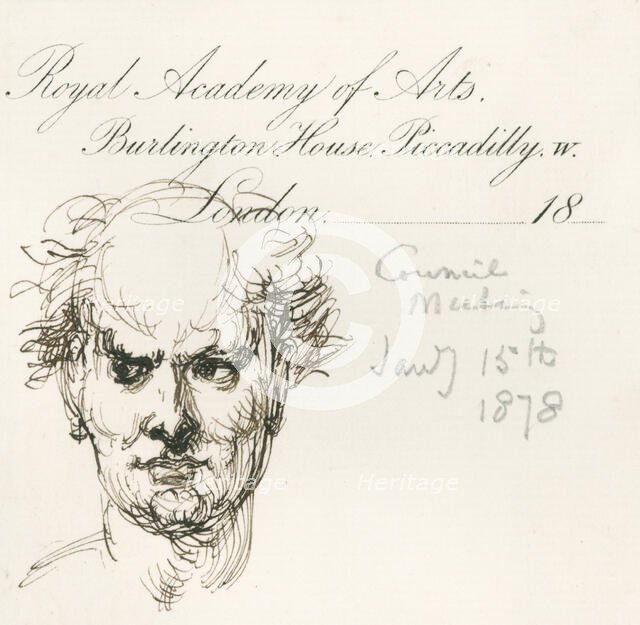 Royal Academy of Arts.
Burlington House, Piccadilly. W.
London. 18
Council
Meeting
Jany 15th
1878
Heritage
Heritage
Heritage
Heritage